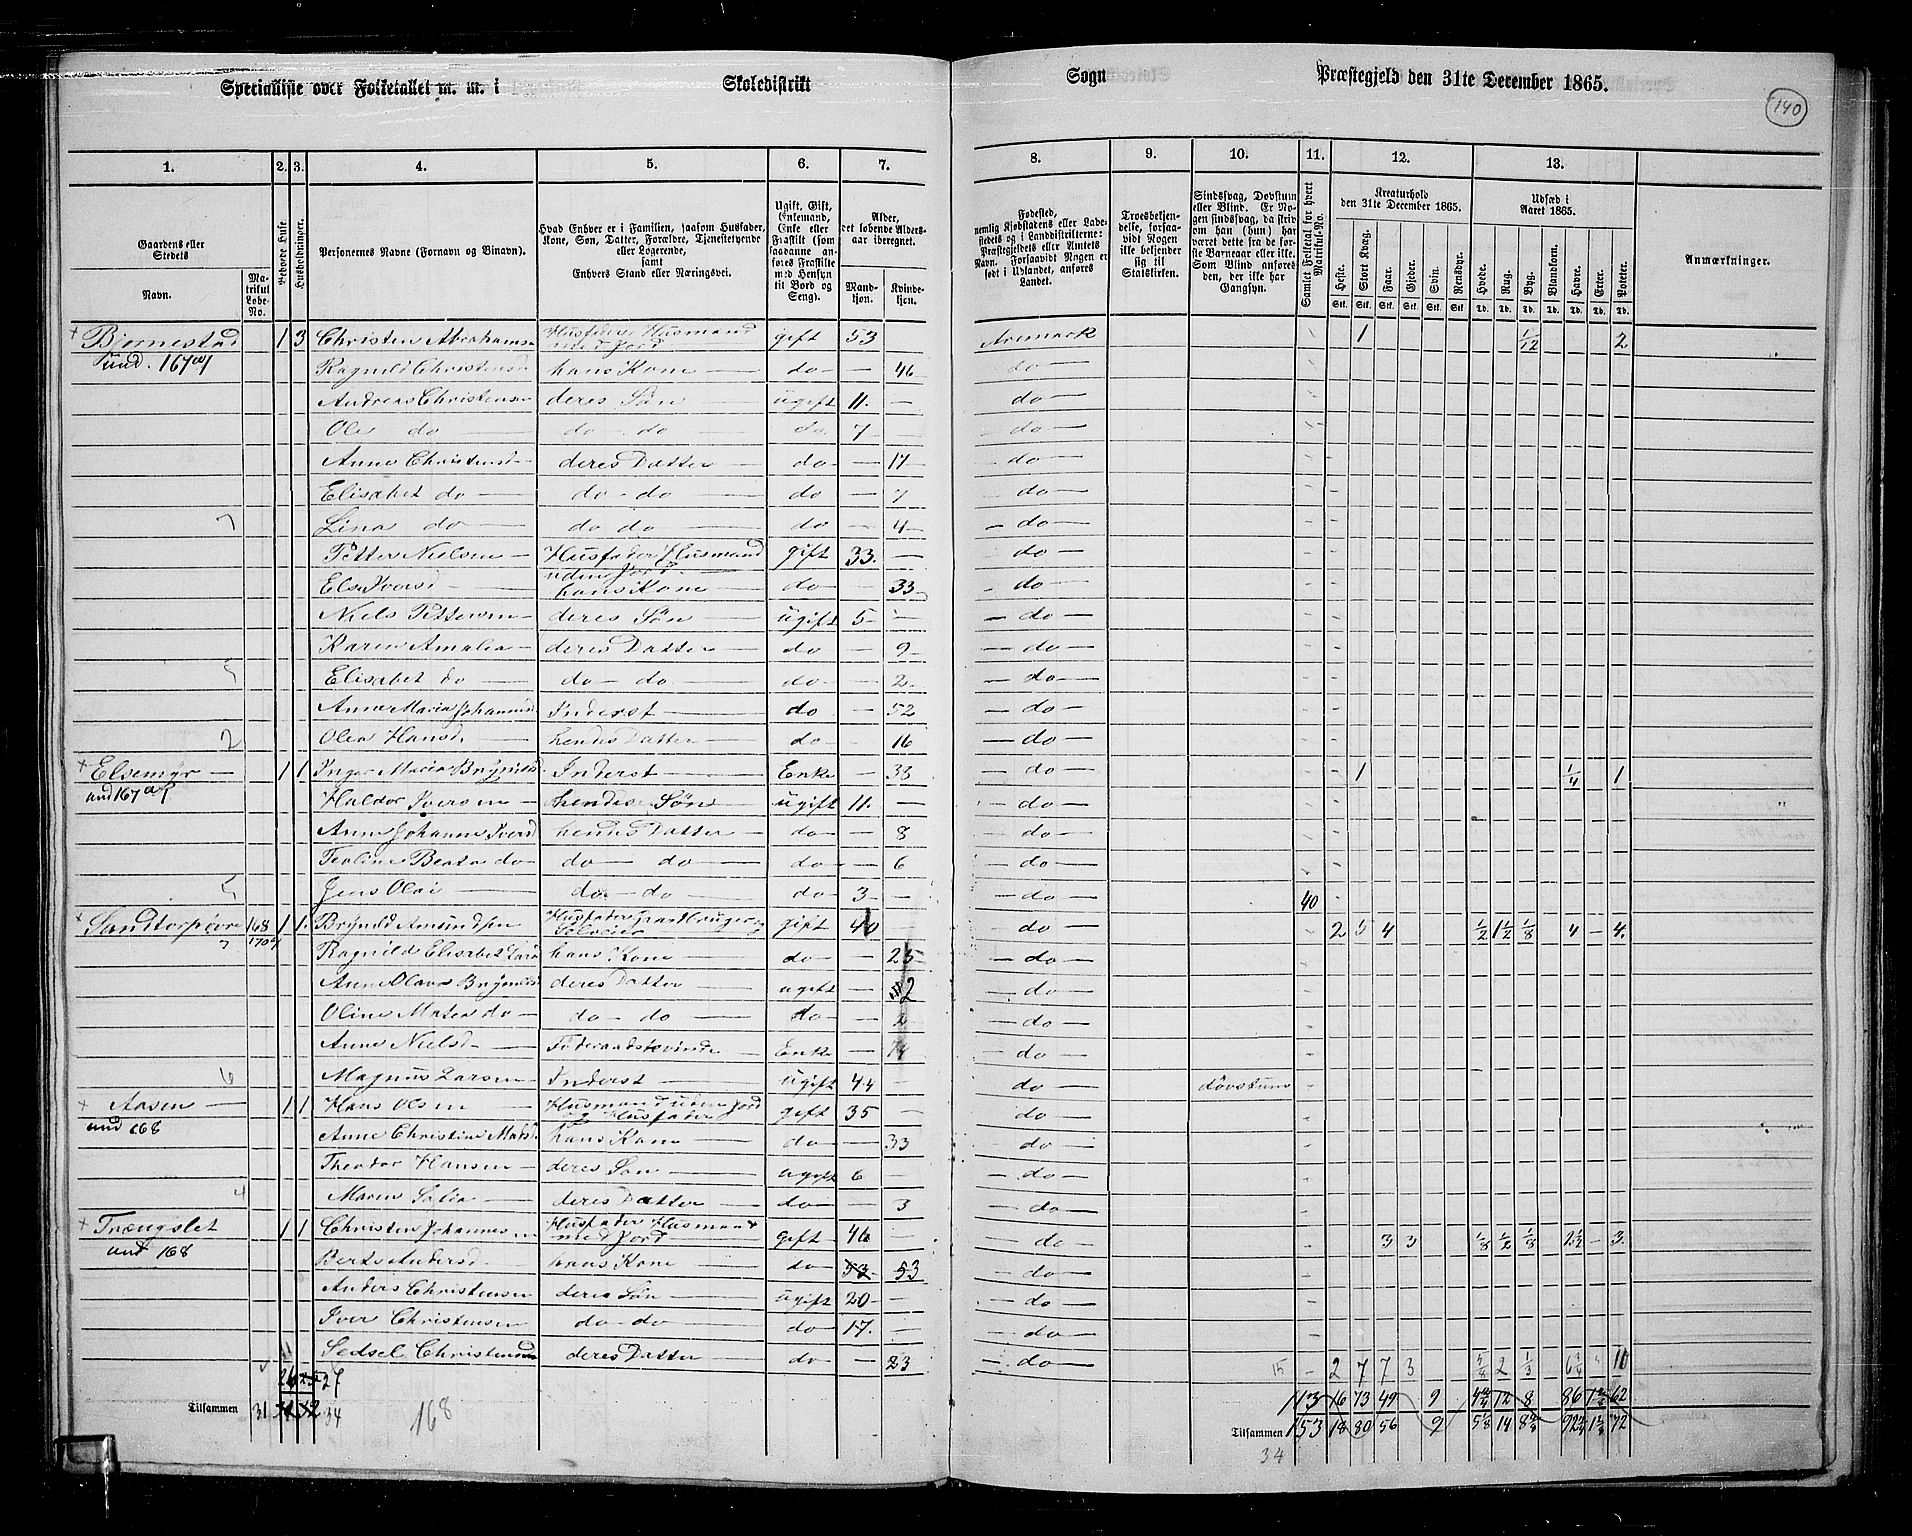 Specialliste over Folketallet m. m. i Skoledistrikt Sogn Præstegjeld den 31te December 1865.
140
1. 2. 3. 4. 5. 6. 7. 8. 9. 10. 11. 12. 13.
Gaardens eller Stedets
Navn. Matrikul Løbe-No.
Beboede Huse
Husholdninger.
Personernes Navne (Fornavn og Binavn).
Hvad Enhver er i Familien, saasom Husfader, Kone, Søn, Datter, Forældre, Tjenestetyende eller Logerende, samt Enhvers Stand eller Næringsvei.
Ugift, Gift, Enkemand, Enke eller Fraskilt (som saadanne anføres Fraskilte med Hensyn til Bord og Seng).
Alder, det løbende Alders-aar iberegnet.
Mandkjøn. Kvindekjøn.
Fødested, nemlig Kjøbstadens eller Ladestedets og i Landdistrikterne: Præstegjeldets eller Amtets Navn. Forsaavidt Nogen er født i Udlandet, anføres Landet.
Troesbekjendelse, forsaavidt Nogen ikke bekjender sig til Statskirken.
Sindssvag, Døvstum eller Blind. Er Nogen sindssvag, da skrives om han (hun) har været dette fra de første Barneaar eller ikke. Som Blind anføres den, der ikke har Gangsyn.
Samlet Folketal for hvert Matrikul-No.
Kreaturhold den 31te December 1865.
Heste. Stort Kvæg. Faar. Gjeder. Svin. Rensdyr.
Udsæd i Aaret 1865.
Hvede. Rug. Byg. Blandkorn. Havre. Erter. Poteter.
Anmærkninger.
Bjørnestad 1 3 Christen Abrahams Husfader Husmand med Jord gift 53 Aremark 1 1/12 2
und. 167 Ragnild Christensd hans Kone do 46 do
Andreas Christensen deres Søn ugift 11. do
Ole do do do do 7 do
Anne Christensd deres Datter do 17 do
Elisabet do do do do 7 do
7 Lina do do do do 4 do
Petter Nielsen Husfader Husmand uden Jord gift 33. do
Else Iversd hans Kone do 33 do
Niels Pettersen deres Søn ugift 5 do
Karen Amalia deres Datter do 9 do
5 Elisabet do do do do 2 do
Anne Maria Johannesd Inderst do 52 do
2 Olea Hansd hendes Datter do 16 do
Elsemyr 1 1 Inger Maria Brynilds Inderst Enke 33 do 1 1/4 1
und 167 Haldor Iversen hendes Søn ugift 11. do
Anne Johanne Iversd hendes Datter do 8 do
Teoline Beata do do do do 6 do
5 Jens Olai do do do 3 do 40
Sandtorpøvre 168 1 1. Brynild Amundsen Husfader Gaardbruger Selveier gift 40 do 2 5 4 1/2 1 1/2 1/8 4 4.
Ragnild Elisabet Lars hans Kone do 25 do
Anne Olava Brynilds deres Datter ugift 2 do
Oline Matea do do do do 2 do
Anne Nielsd Føderaadskvinde Enke 74 do
6 Magnus Larsen Inderst ugift 44 do døvstum
Aasen 1 1 Hans Olsen Husmand uden Jord og Husfader gift 35 do
und 168 Anne Christine Matsd hans Kone do 33 do
Theodor Hansen deres Søn ugift 6 do
4 Maren Sofie deres Datter do 3 do
Trængslet 1 1 Christen Johannesen Husfader Husmand med Jord gift 46 do 3 3 1/8 1/2 1/8 2 1/2 3.
und 168 Berte Andersd hans Kone do 53 53 do
Anders Christensen deres Søn ugift 20 do
Iver Christensen do do do 17. do
Sedsel Christensd deres Datter do 23 do
15 2 7 7 3 5/8 2 1/3 10
113 16 73 49 9 12 8 86 62
Tilsammen 31 34 168 Tilsammen 153 18 80 56 9 5 1/8 14 72
34